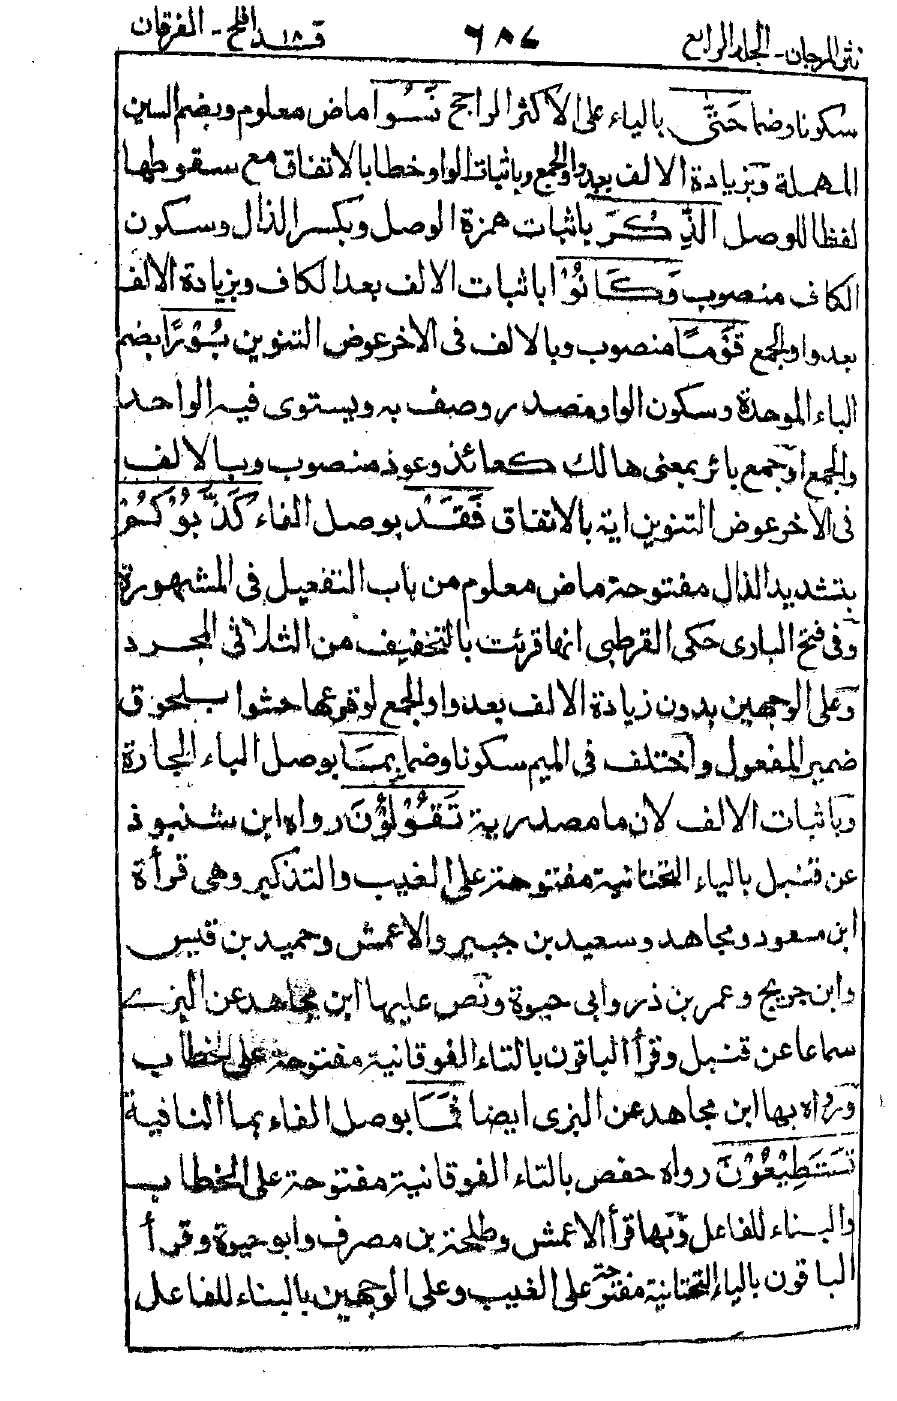 نثر المرجان - الجلد الرابع ٦٨٧ قد افلح ١٨ - الفرقان
سكونا وضما حَتّٰى بالياء على الاكثر الراجح نَسُوا ماض معلوم وبضم السين
المهملة وبزيادة الالف بعد واو الجمع وباثبات الواو خطا بالاتفاق مع سقوطها
لفظا للوصل الذِّكْرَ باثبات همزة الوصل وبكسر الذال وسكون
الكاف منصوب وَكَانُوْا باثبات الالف بعد الكاف وبزيادة الالف
بعد واو الجمع قَوْمًا منصوب وبالالف فى الاخر عوض التنوين بُوْرًا بضم
الباء الموحدة وسكون الواو مصدر وصف به ويستوى فيه الواحد
والجمع اوجمع بائر بمعنى هالك كعائذ وعوذ منصوب وبالالف
فى الاخر عوض التنوين اية بالاتفاق فَقَدْ بوصل الفاء كَذَّبُوْكُمْ
بتشديد الذال مفتوحة ماض معلوم من باب التفعيل فى المشهورة
وفى فتح البارى حكى القرطبى انها قرئت بالتخفيف من الثلاثى المجرد
وعلى الوجهين بدون زيادة الالف بعد واو الجمع لوقوعها حشوا بلحوق
ضمير المفعول واختلف فى الميم سكونا وضما بِمَا بوصل الباء الجارة
وباثبات الالف لان ما مصدرية تَقُوْلُوْنَ رواه ابن شنبوذ
عن قنبل بالياء التحتانية مفتوحة على الغيب والتذكير وهى قرأة
ابن مسعود ومجاهد وسعيد بن جبير والاعمش وحميد بن قيس
وابن جريج وعمر بن ذر وابى حيوة ونص عليها ابن مجاهد عن البزى
سماعا عن قنبل وقرأ الباقون بالتاء الفوقانية مفتوحة على الخطاب
ورواه بها ابن مجاهد عن البزى ايضا فَمَا بوصل الفاء بما النافية
تَسْتَطِيْعُوْنَ رواه حفص بالتاء الفوقانية مفتوحة على الخطاب
والبناء للفاعل وبها قرأ الاعمش وطلحة بن مصرف وابو حيوة وقرأ
الباقون بالياء التحتانية مفتوحة على الغيب وعلى الوجهين بالبناء للفاعل